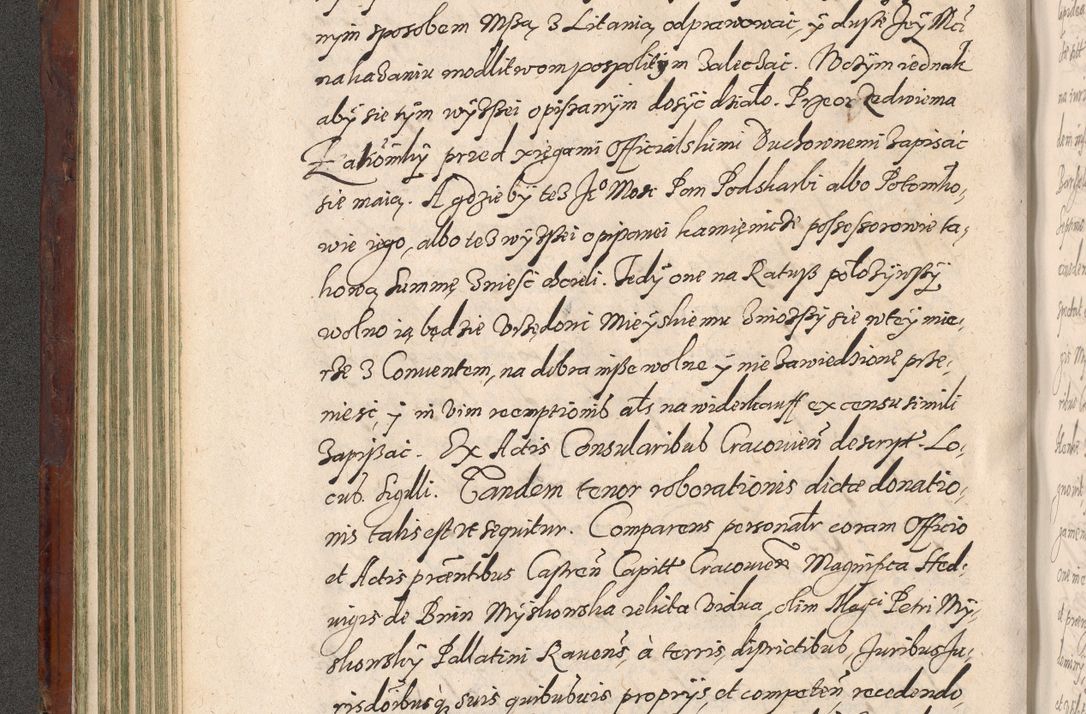 nym sposobem Mszą z Litanią odprawować, ÿ duszę Jeÿ Mci
na kazaniu modlitwom pospolitÿm zalecać. Wszym iednak
abÿ się tÿm wÿższei opisanÿm dosÿć działo. Przeor ze dwiema
Zakonnikÿ przed xięgami Officialskimi Duchownemi zapisać
się maią. A gdzie bÿ tez Jeº Mosc Pan Podskarbi albo Potomko,
wie iego, albo tez wÿższei opisanei kamięnice possessorowie ta,
kową summę znieść chcieli. Tedÿ one na Ratusz położÿwszÿ
wolno ią będzie Vrzędowi Mieÿskiemu zniozszÿ się w teÿ mie,
rze z Conuentem, na dobra insze wolne ÿ nie zawiedzione prze,
nieść ÿ in vim reemptionis als na widerkauff ex censu simili
zapissać. Ex Actis Consularibus Cracouien descrypt. Lo,
cus. Sigilli. Tandem tenor roborationis dictæ donatio,
nis talis est vt sequitur. Comparens personalr coram Officio
et Actis præntibus Castren Capitt Cracouien Magnifica Hed,
uigis de Bnin Mÿskowska relicta vidua, olim Magci Petri Mÿ,
skowskÿ Pallatini Rauens, à terris, districtibus, Juribus Ju,
risdoibusq suis quibusuis proprÿs, et competen recedendo